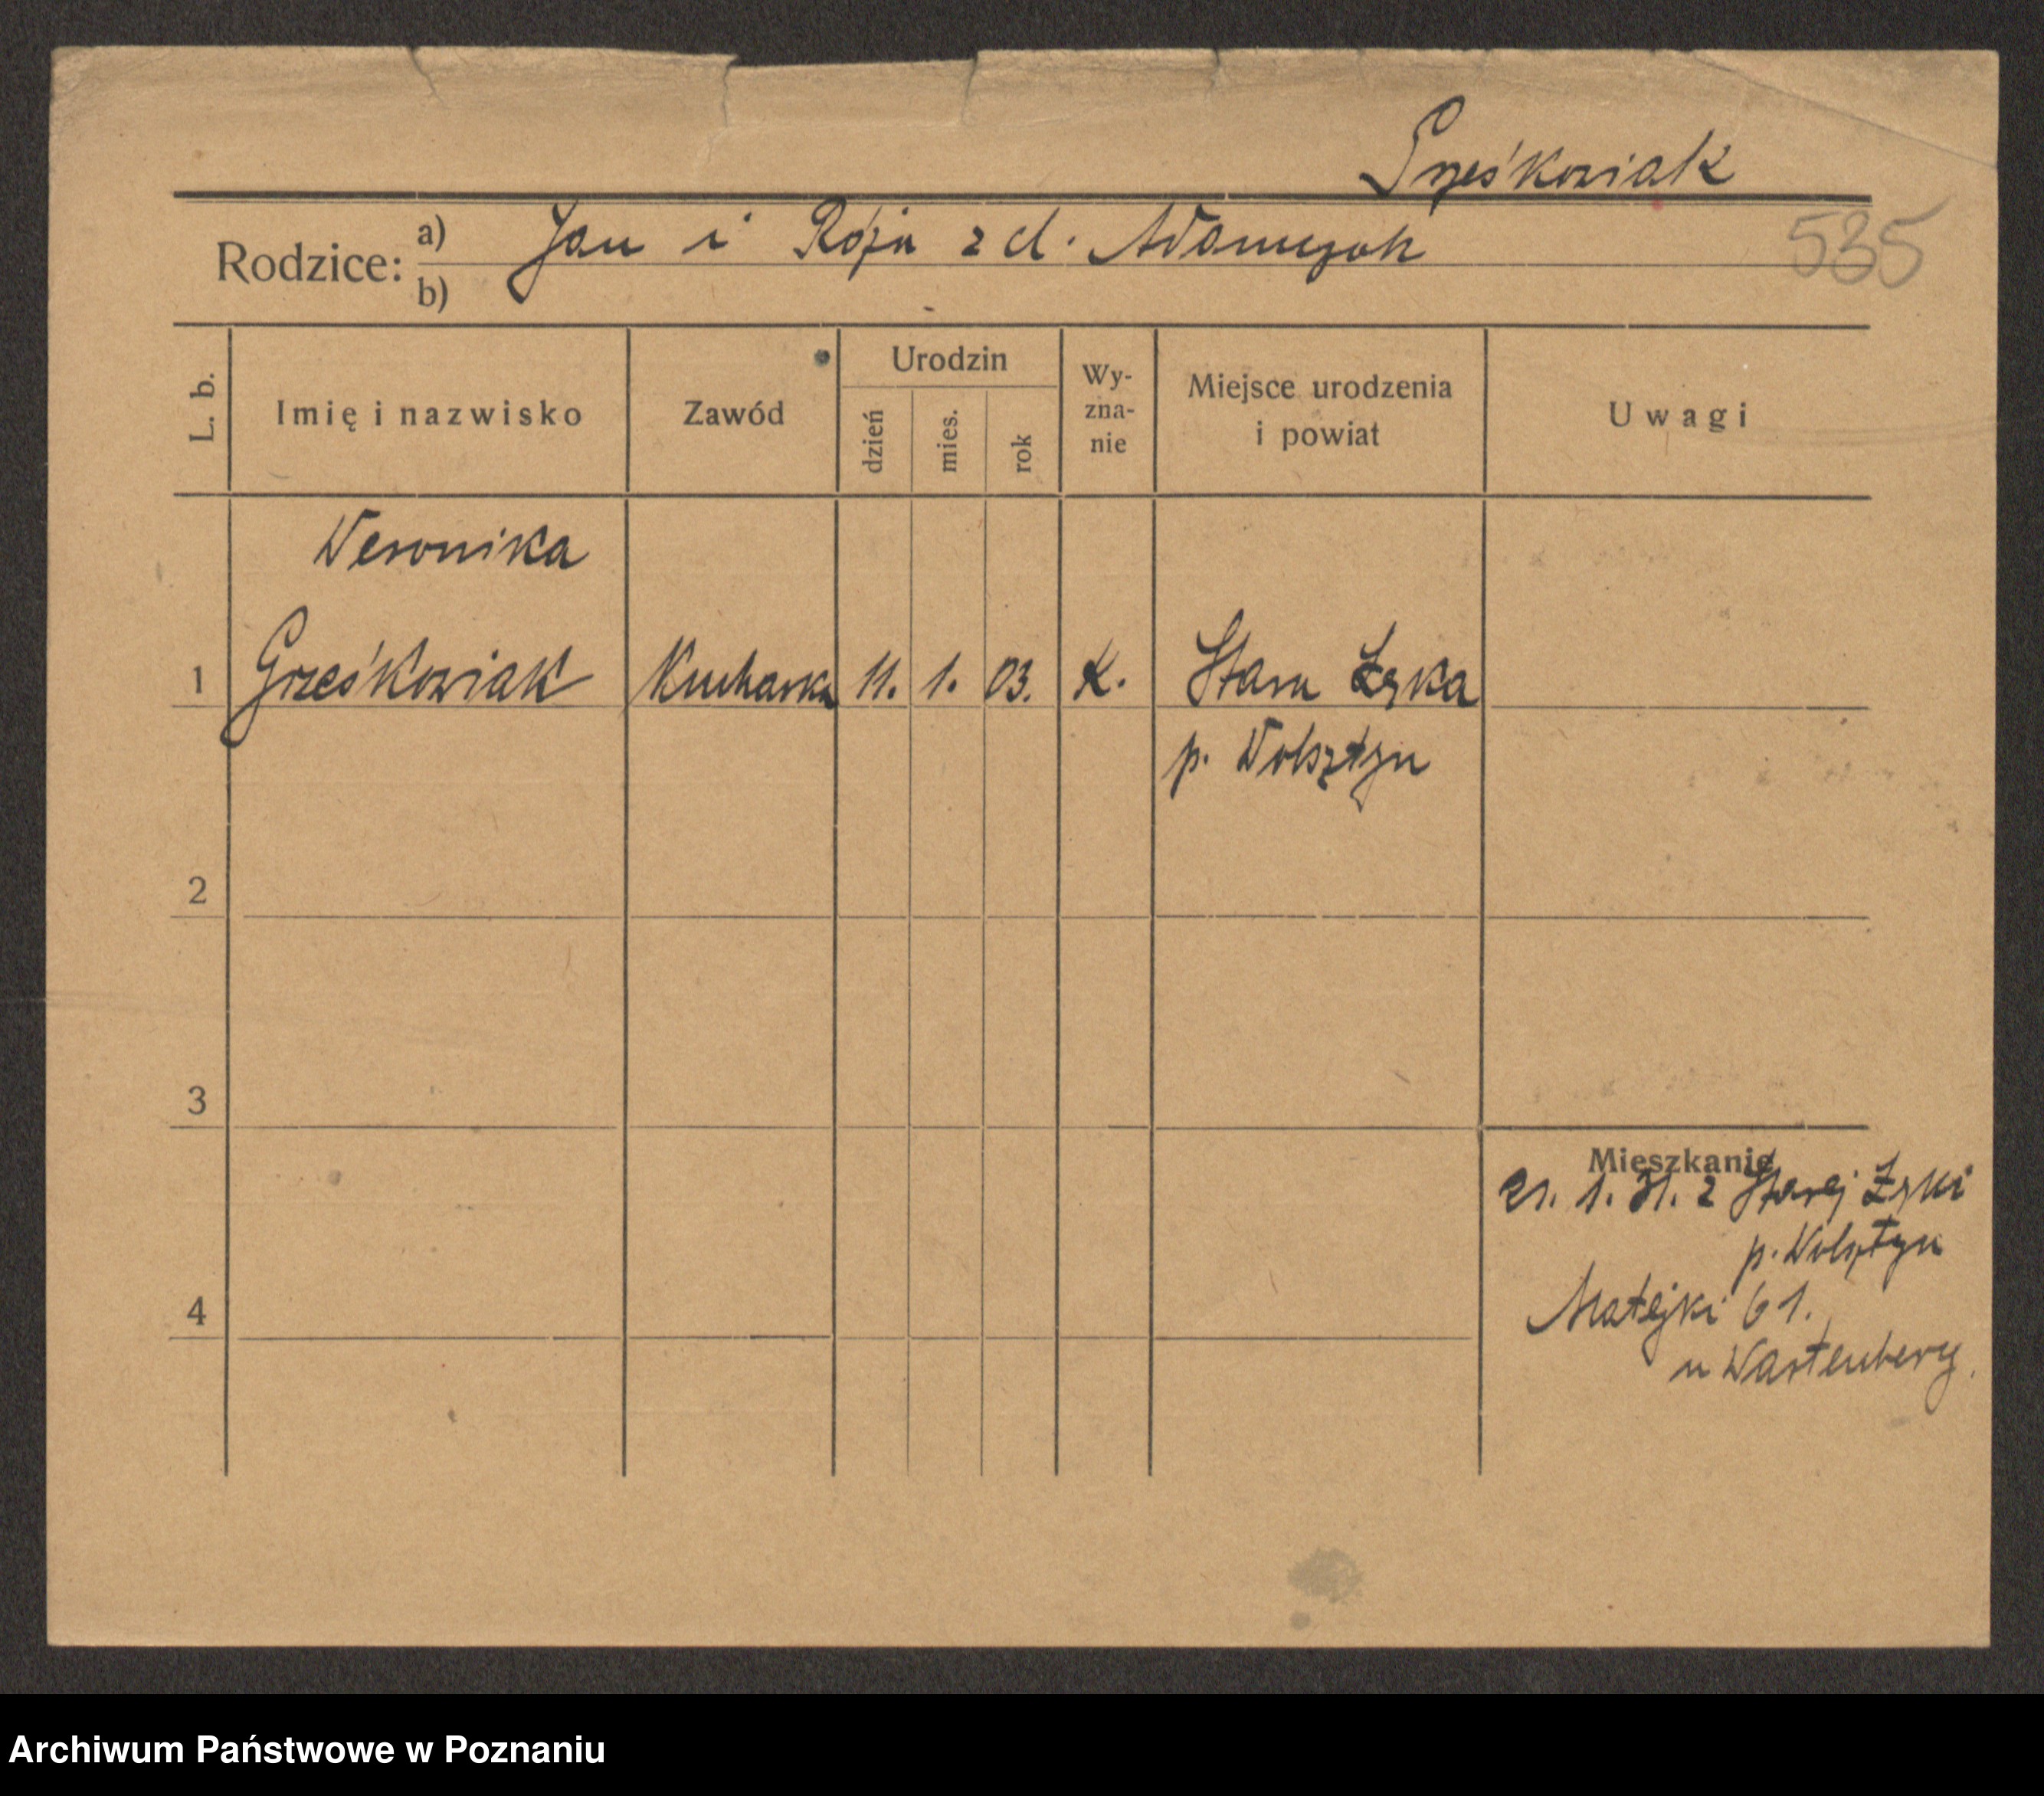 Grześkowiak
535
Rodzice: a) Jan i Róża z d. Adamczak
b)
L. b.
Imię i nazwisko
Zawód
Urodzin
dzień
mies.
rok
Wy-
zna-
nie
Miejsce urodzenia
i powiat
Uwagi
Weronika
1 Grześkowiak Kucharka 11. 1. 03. K. Stara Łąka
p. Wolsztyn
2
3
Mieszkanie
21. 1. 31. z Starej Łąki
p. Wolsztyn
4
Matejki 61.
u Wartenberg.
Archiwum Państwowe w Poznaniu